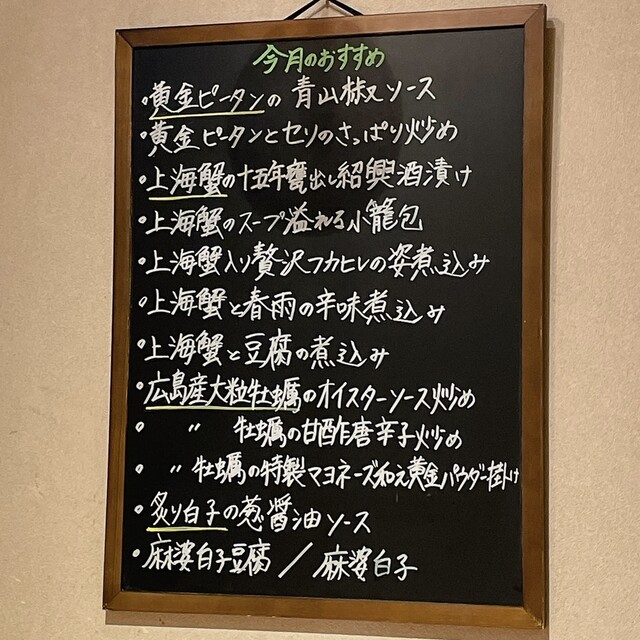 今月のおすすめ
・黄金ピータンの青山椒ソース
・黄金ピータンとセリのさっぱり炒め
・上海蟹の十五年甕出し紹興酒漬け
・上海蟹のスープ溢れる小籠包
・上海蟹入り贅沢フカヒレの姿煮込み
・上海蟹と春雨の辛味煮込み
・上海蟹と豆腐の煮込み
・広島産大粒牡蠣のオイスターソース炒め
・ 〃 牡蠣の甘酢唐辛子炒め
・ 〃 牡蠣の特製マヨネーズ和え黄金パウダー掛け
・炙り白子の葱醤油ソース
・麻婆白子豆腐 / 麻婆白子